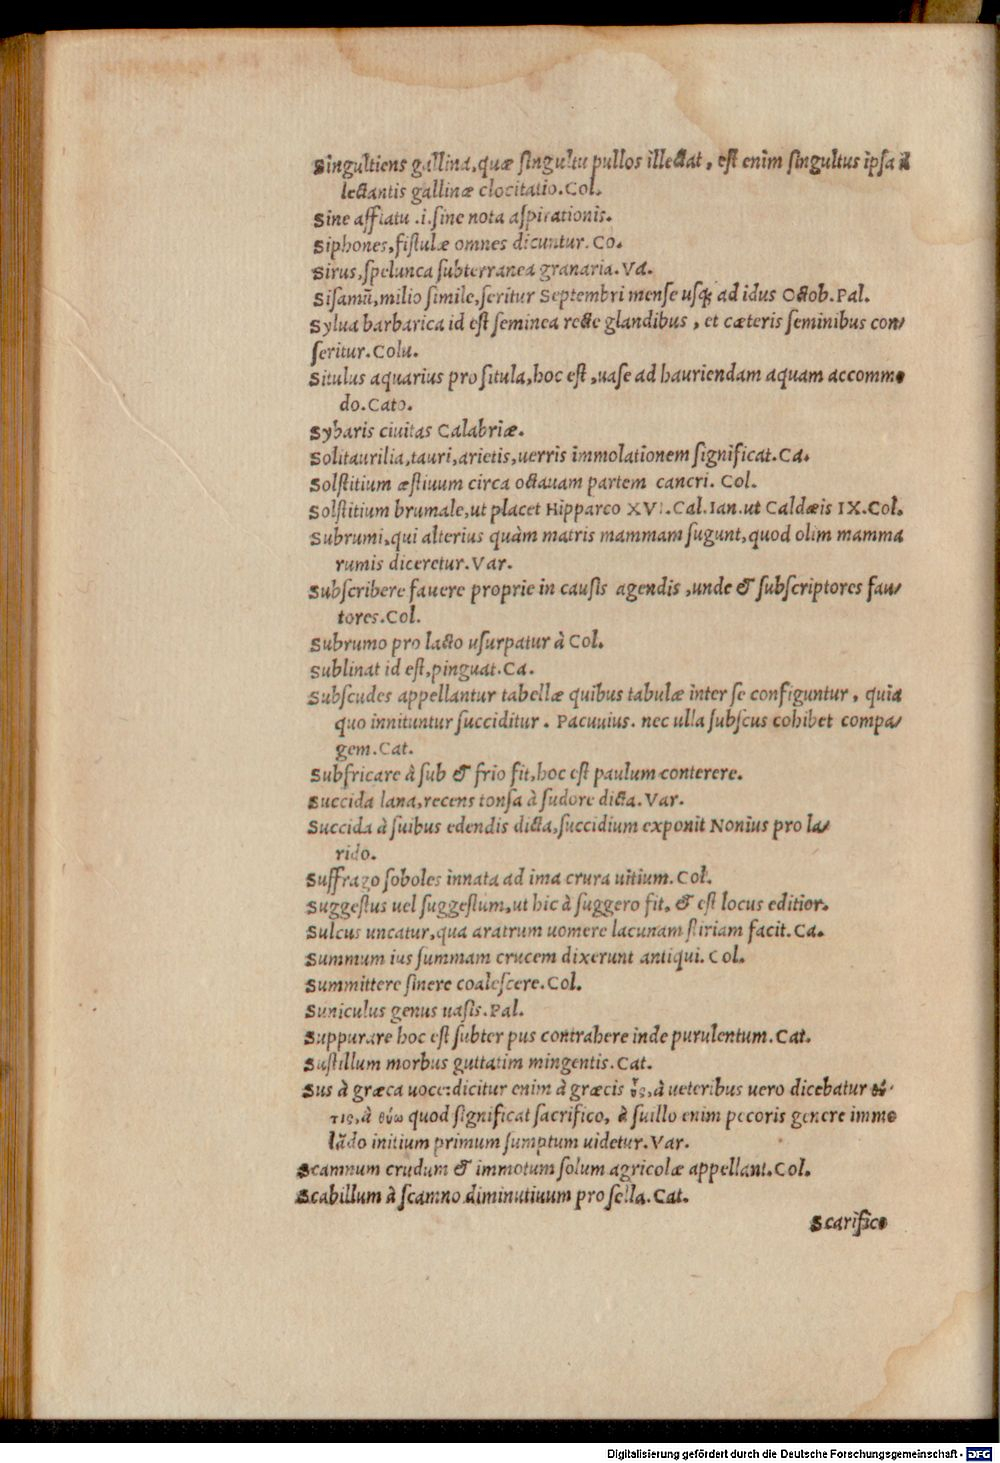 Singultiens gallina,quæ ſingultu pullos illectat, eſt enim ſingultus ipſa il
lectantis gallinæ clocitatio.Col.
Sine afflatu .i.ſine nota aſpirationis.
Siphones,fiſtulæ omnes dicuntur.Co.
Sirus,ſpelunca ſubterranea granaria.Va.
Siſamū,milio ſimile,ſeritur Septembri menſe uſq; ad idus Octob.Pal.
Sylua barbarica id eſt ſeminea recte glandibus, et cæteris ſeminibus con/
ſeritur.Colu.
Situlus aquarius pro ſitula,hoc eſt,uaſe ad hauriendam aquam accommo
do.Cato.
Sybaris ciuitas Calabriæ.
Solitaurilia,tauri,arietis,uerris immolationem ſignificat.Ca.
Solſtitium æſtiuum circa octauam partem cancri. Col.
Solſtitium brumale,ut placet Hipparco XVI.Cal.Ian.ut Caldæis IX.Col.
Subrumi,qui alterius quàm matris mammam ſugunt,quod olim mamma
rumis diceretur.Var.
Subſcribere fauere proprie in cauſis agendis ,unde & ſubſcriptores fau/
tores.Col.
Subrumo pro lacto uſurpatur à Col.
Sublinat id eſt,pinguat.Ca.
Subſcudes appellantur tabellæ quibus tabulæ inter ſe configuntur, quia
quo innituntur ſucciditur. Pacuuius. nec ulla ſubſcus cohibet compa/
gem.Cat.
Subfricare à ſub & frio fit,hoc eſt paulum conterere.
Succida lana,recens tonſa à ſudore dicta.Var.
Succida à ſuibus edendis dicta,ſuccidium exponit Nonius pro la/
rido.
Suffrago ſoboles innata ad ima crura uitium.Col.
Suggeſtus uel ſuggeſtum,ut hic à ſuggero fit, & eſt locus editior.
Sulcus uncatur,qua aratrum uomere lacunam ſtriam facit.Ca.
Summum ius ſummam crucem dixerunt antiqui.Col.
Summittere ſinere coaleſcere.Col.
Suniculus genus uaſis.Pal.
Suppurare hoc eſt ſubter pus contrahere inde purulentum.Cat.
Suſtillum morbus guttatim mingentis.Cat.
Sus à græca uoce:dicitur enim à græcis ὗς,à ueteribus uero dicebatur
τις,à θύω quod ſignificat ſacrifico, à ſuillo enim pecoris genere immo
lādo initium primum ſumptum uidetur.Var.
Scamnum crudum & immotum ſolum agricolæ appellant.Col.
Scabillum à ſcamno diminutiuum pro ſella.Cat.
Scarifico
Digitalisierung gefördert durch die Deutsche Forschungsgemeinschaft - DFG